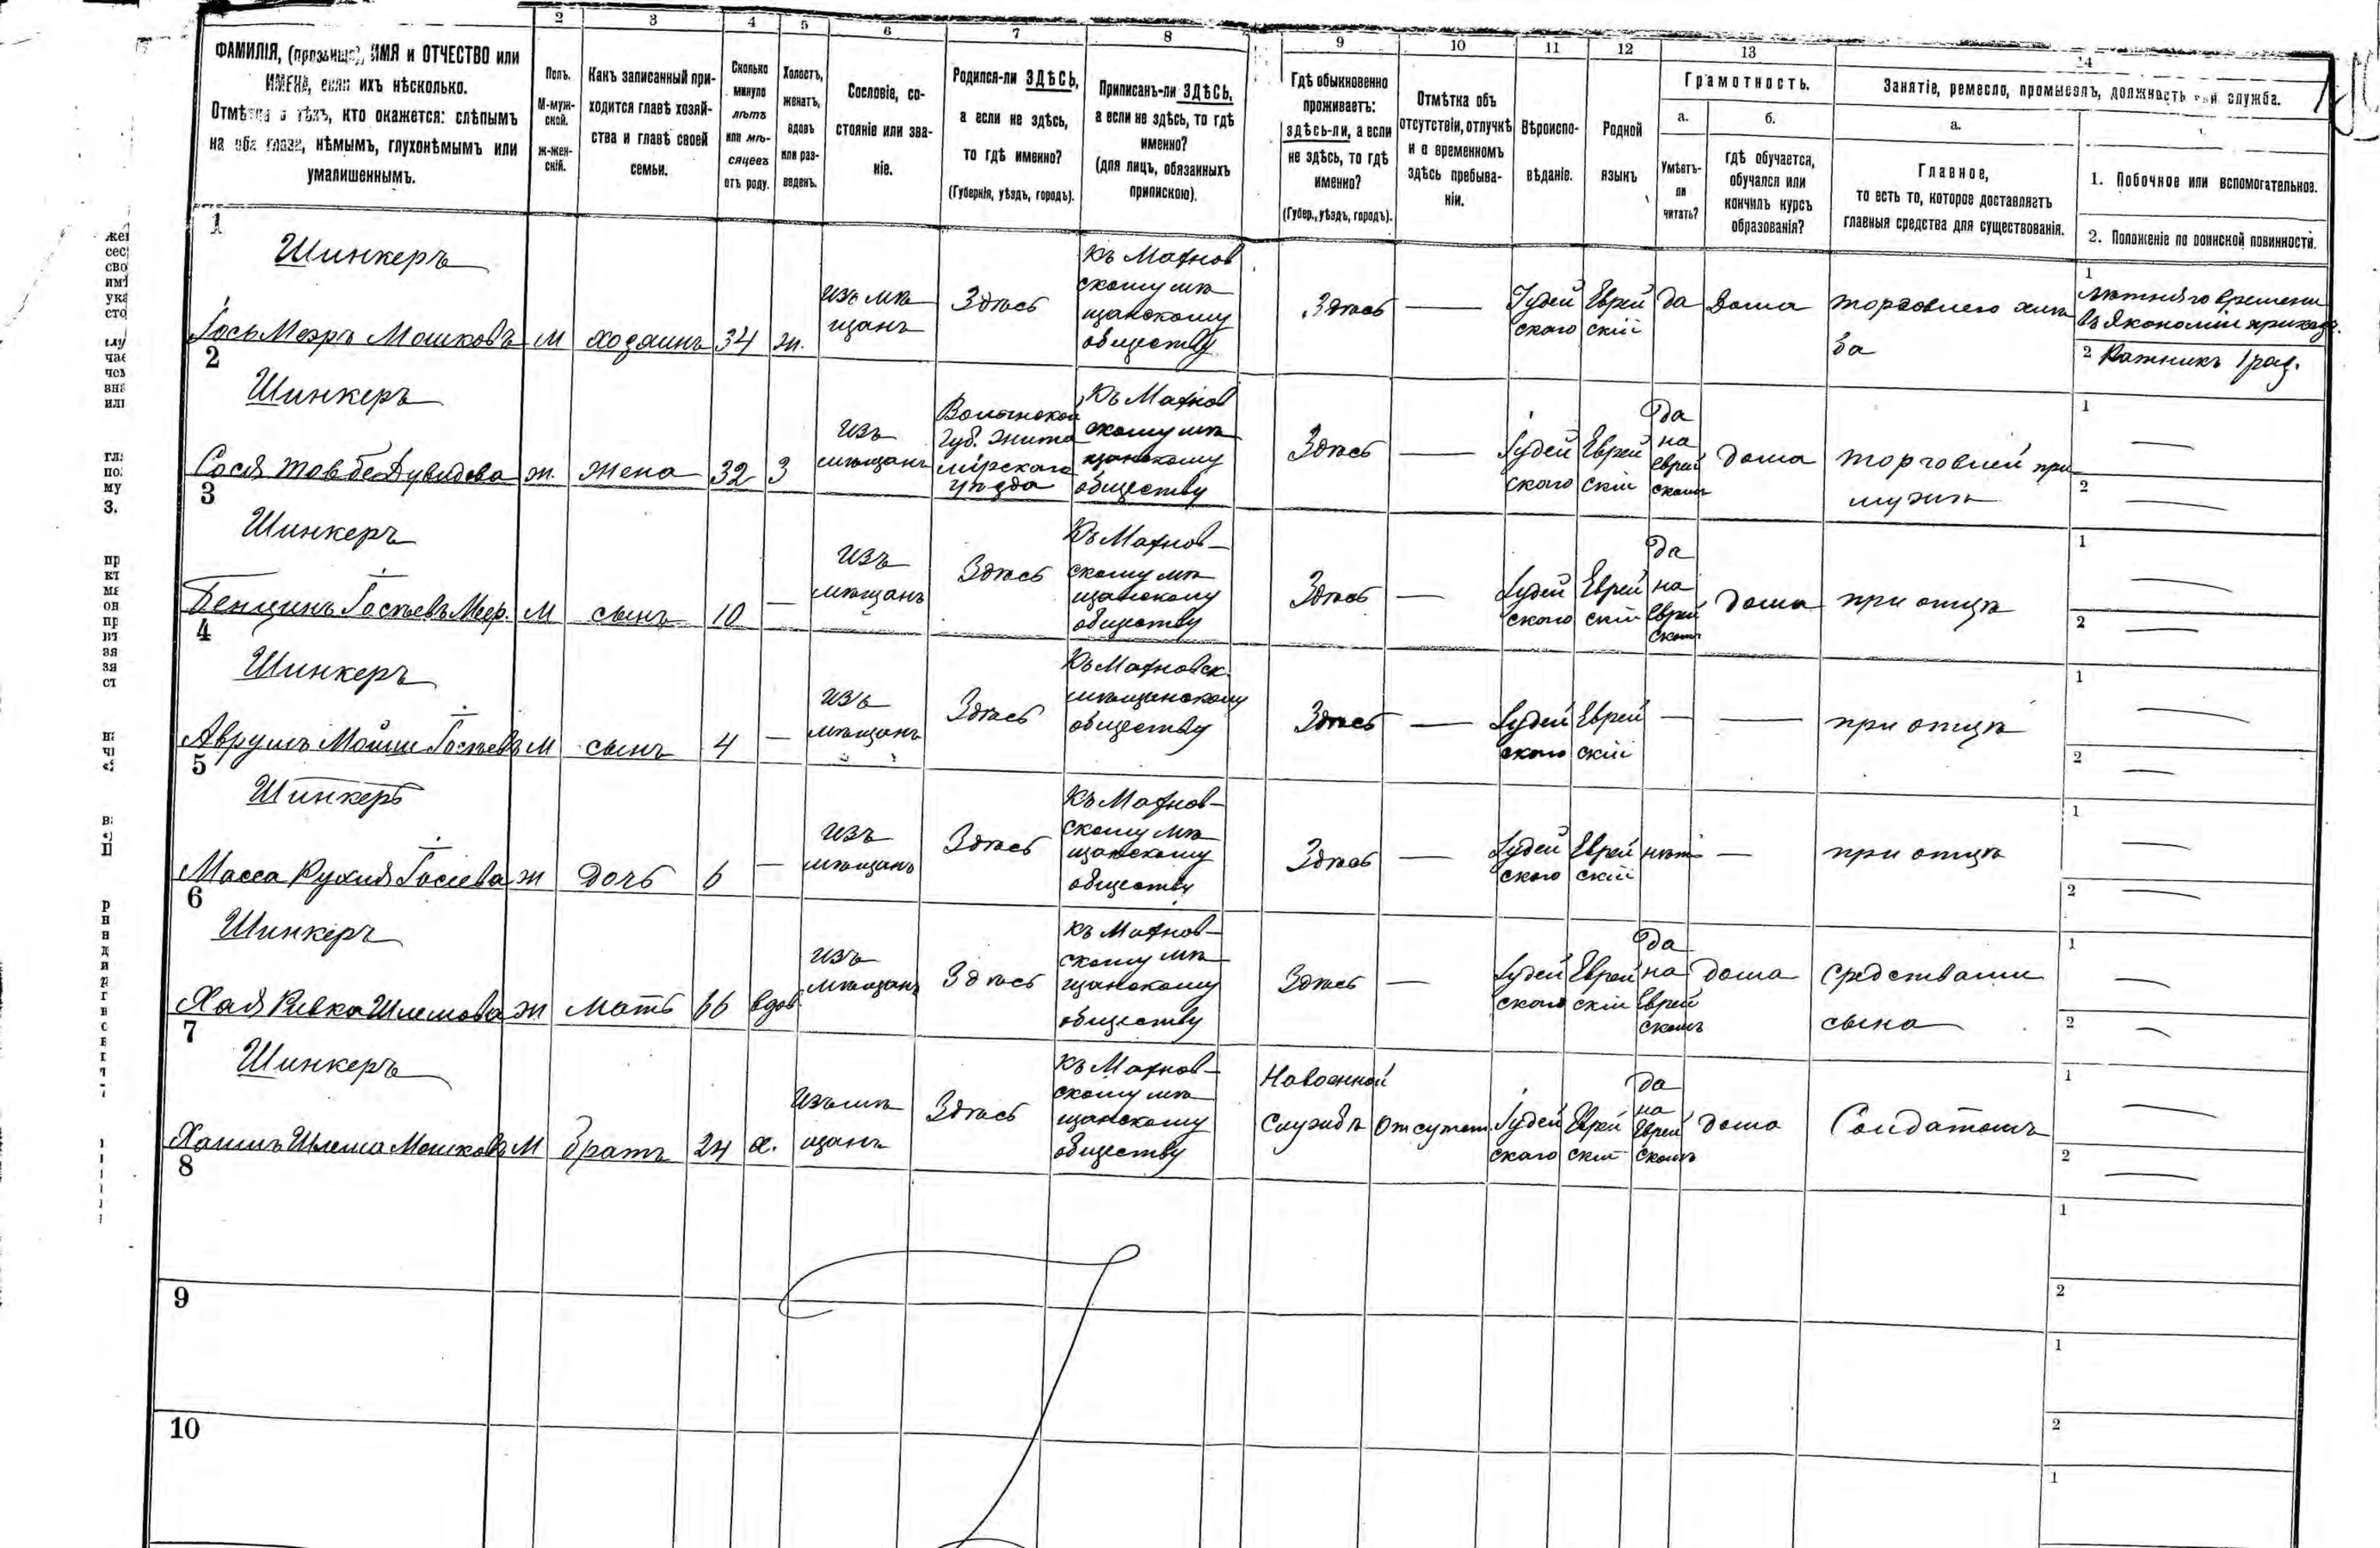 2 3 4 5 6 7 8 9 10 11 12 13 14
ФАМИЛІЯ, (прозвище), ИМЯ и ОТЧЕСТВО или
ИМЕНА, если ихъ нѣсколько.
Отмѣтка о тѣхъ, кто окажется: слѣпымъ
на оба глаза, нѣмымъ, глухонѣмымъ или
умалишеннымъ.
Полъ.
М-муж-
ской.
Ж-жен-
скій.
Какъ записанный при-
ходится главѣ хозяй-
ства и главѣ своей
семьи.
Сколько
минуло
лѣтъ
или мѣ-
сяцевъ
отъ роду.
Холостъ,
женатъ,
вдовъ
или раз-
веденъ.
Сословіе, со-
стояніе или зва-
ніе.
Родился-ли ЗДѢСЬ,
а если не здѣсь,
то гдѣ именно?
(Губернія, уѣздъ, городъ).
Приписанъ-ли ЗДѢСЬ,
а если не здѣсь, то гдѣ
именно?
(для лицъ, обязанныхъ
припискою).
Гдѣ обыкновенно
проживаетъ:
здѣсь-ли, а если
не здѣсь, то гдѣ
именно?
(Губер., уѣздъ, городъ).
Отмѣтка объ
отсутствіи, отлучкѣ
и о временномъ
здѣсь пребыва-
ніи.
Вѣроиспо-
вѣданіе.
Родной
языкъ
Грамотность.
а.
Умѣетъ-
ли
читать?
б.
гдѣ обучается,
обучался или
кончилъ курсъ
образованія?
Занятіе, ремесло, промыселъ, должность или служба.
а.
Главное,
то есть то, которое доставляетъ
главныя средства для существованія.
1. Побочное или вспомогательное.
2. Положеніе по воинской повинности.
1
Шинкеръ
Іось Меэръ Мошковъ
М
хозяинъ
34
ж.
изъ мѣ
щанъ
Здѣсь
Къ Махнов
скому мѣ
щанскому
обществу
Здѣсь
—
Іудей
скаго
Еврей
скій
да
дома
торговлею
1
лѣтняго времени
2 Ратникъ 1 раз.
2
Шинкеръ
Сося Товбе Дувидова
ж.
жена
32
З
изъ
мѣщанъ
Волынской
Губ. Жито
мірскаго
уѣзда
Къ Махнов
скому мѣ
щанскому
обществу
Здѣсь
—
Іудей
скаго
Еврей
скій
Да
на
еврей
скомъ
дома
торговлей при
мужѣ
1 —
2 —
3
Шинкеръ
Бенционъ Іосьевъ Меер.
М
сынъ
10
—
изъ
мѣщанъ
Здѣсь
Къ Махнов-
скому мѣ
щанскому
обществу
Здѣсь
—
Іудей
скаго
Еврей
скій
Да
на
Еврей
скомъ
дома
при отцѣ
1 —
2 —
4
Шинкеръ
Аврумъ Мойше Іосьевъ
М
сынъ
4
—
изъ
мѣщанъ
Здѣсь
Къ Махновск.
мѣщанскому
обществу
Здѣсь
—
Іудей
скаго
Еврей
скій
—
—
при отцѣ
1 —
2 —
5
Шинкеръ
Масса Рухля Іосева
ж
дочь
6
—
изъ
мѣщанъ
Здѣсь
Къ Махнов-
скому мѣ
щанскому
обществу
Здѣсь
—
Іудей
скаго
Еврей
скій
нѣтъ
—
при отцѣ
1 —
2 —
6
Шинкеръ
Хая Ривка Шлемова
ж
мать
66
вдов
изъ
мѣщанъ
Здѣсь
Къ Махнов-
скому мѣ
щанскому
обществу
Здѣсь
—
Іудей
скаго
Еврей
скій
Да
на
Еврей
скомъ
дома
Средствами
сына
1 —
2 —
7
Шинкеръ
Хаимъ Шлема Мошковъ
М
братъ
24
х.
Изъ мѣ
щанъ
Здѣсь
Къ Махнов-
скому мѣ
щанскому
обществу
На военной
Службѣ
Отсутст.
Іудей
скаго
Еврей
скій
Да
на
Еврей
скомъ
дома
Солдатомъ
1 —
2 —
8
1
2
9
1
2
10
1